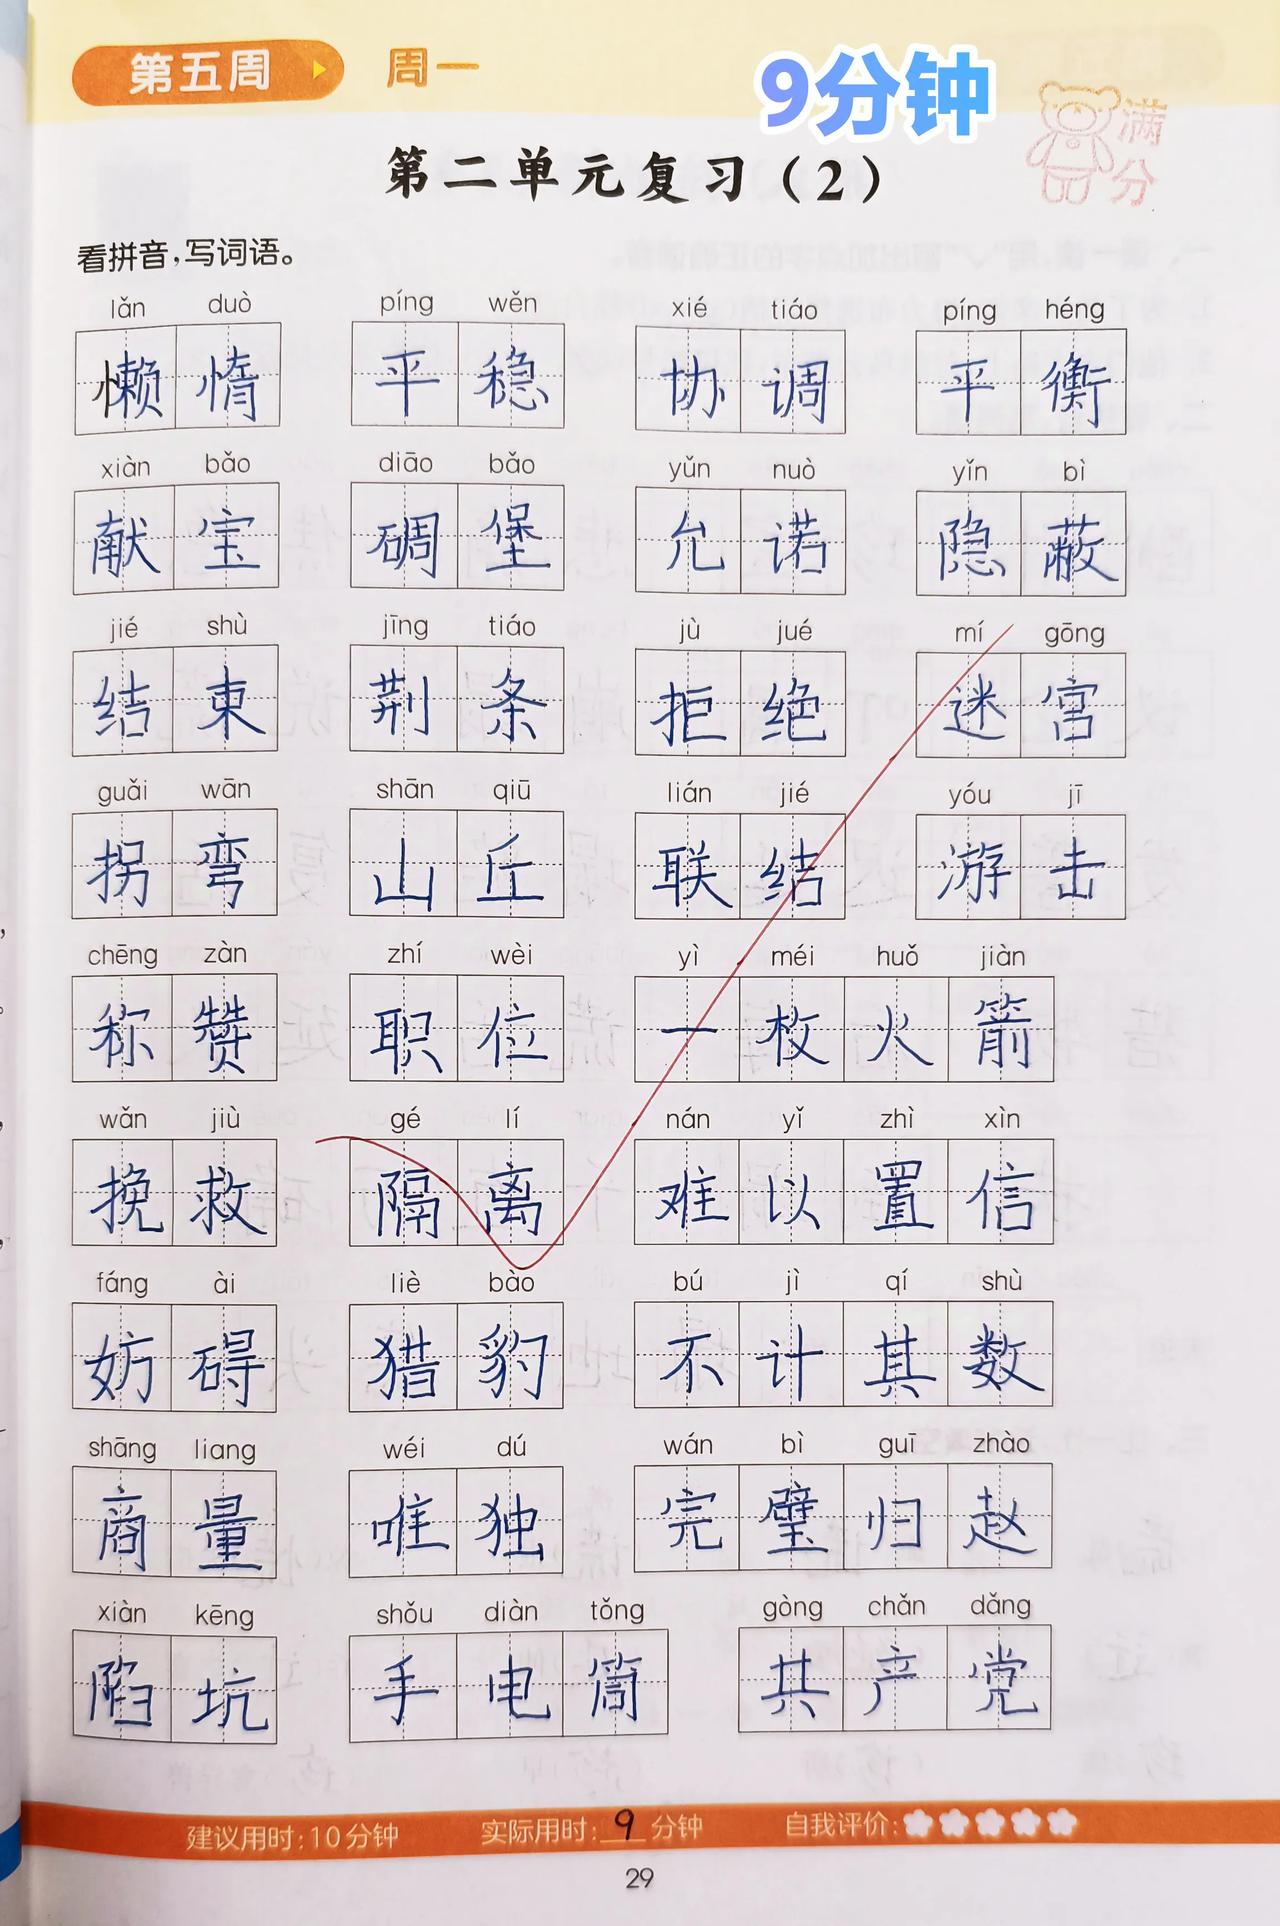 第五周 周一 9分钟
满分
第二单元复习(2)
看拼音,写词语。
lǎn duò píng wěn xié tiáo píng héng
懒惰 平稳 协调 平衡
xiàn bǎo diāo bǎo yǔn nuò yǐn bì
献宝 碉堡 允诺 隐蔽
jié shù jīng tiáo jù jué mí gōng
结束 荆条 拒绝 迷宫
guǎi wān shān qiū lián jié yóu jī
拐弯 山丘 联结 游击
chēng zàn zhí wèi yì méi huǒ jiàn
称赞 职位 一枚火箭
wǎn jiù gé lí nán yǐ zhì xìn
挽救 隔离 难以置信
fáng ài liè bào bú jì qí shù
妨碍 猎豹 不计其数
shāng liang wéi dú wán bì guī zhào
商量 唯独 完璧归赵
xiàn kēng shǒu diàn tǒng gòng chǎn dǎng
陷坑 手电筒 共产党
建议用时:10分钟 实际用时:9分钟 自我评价:
29